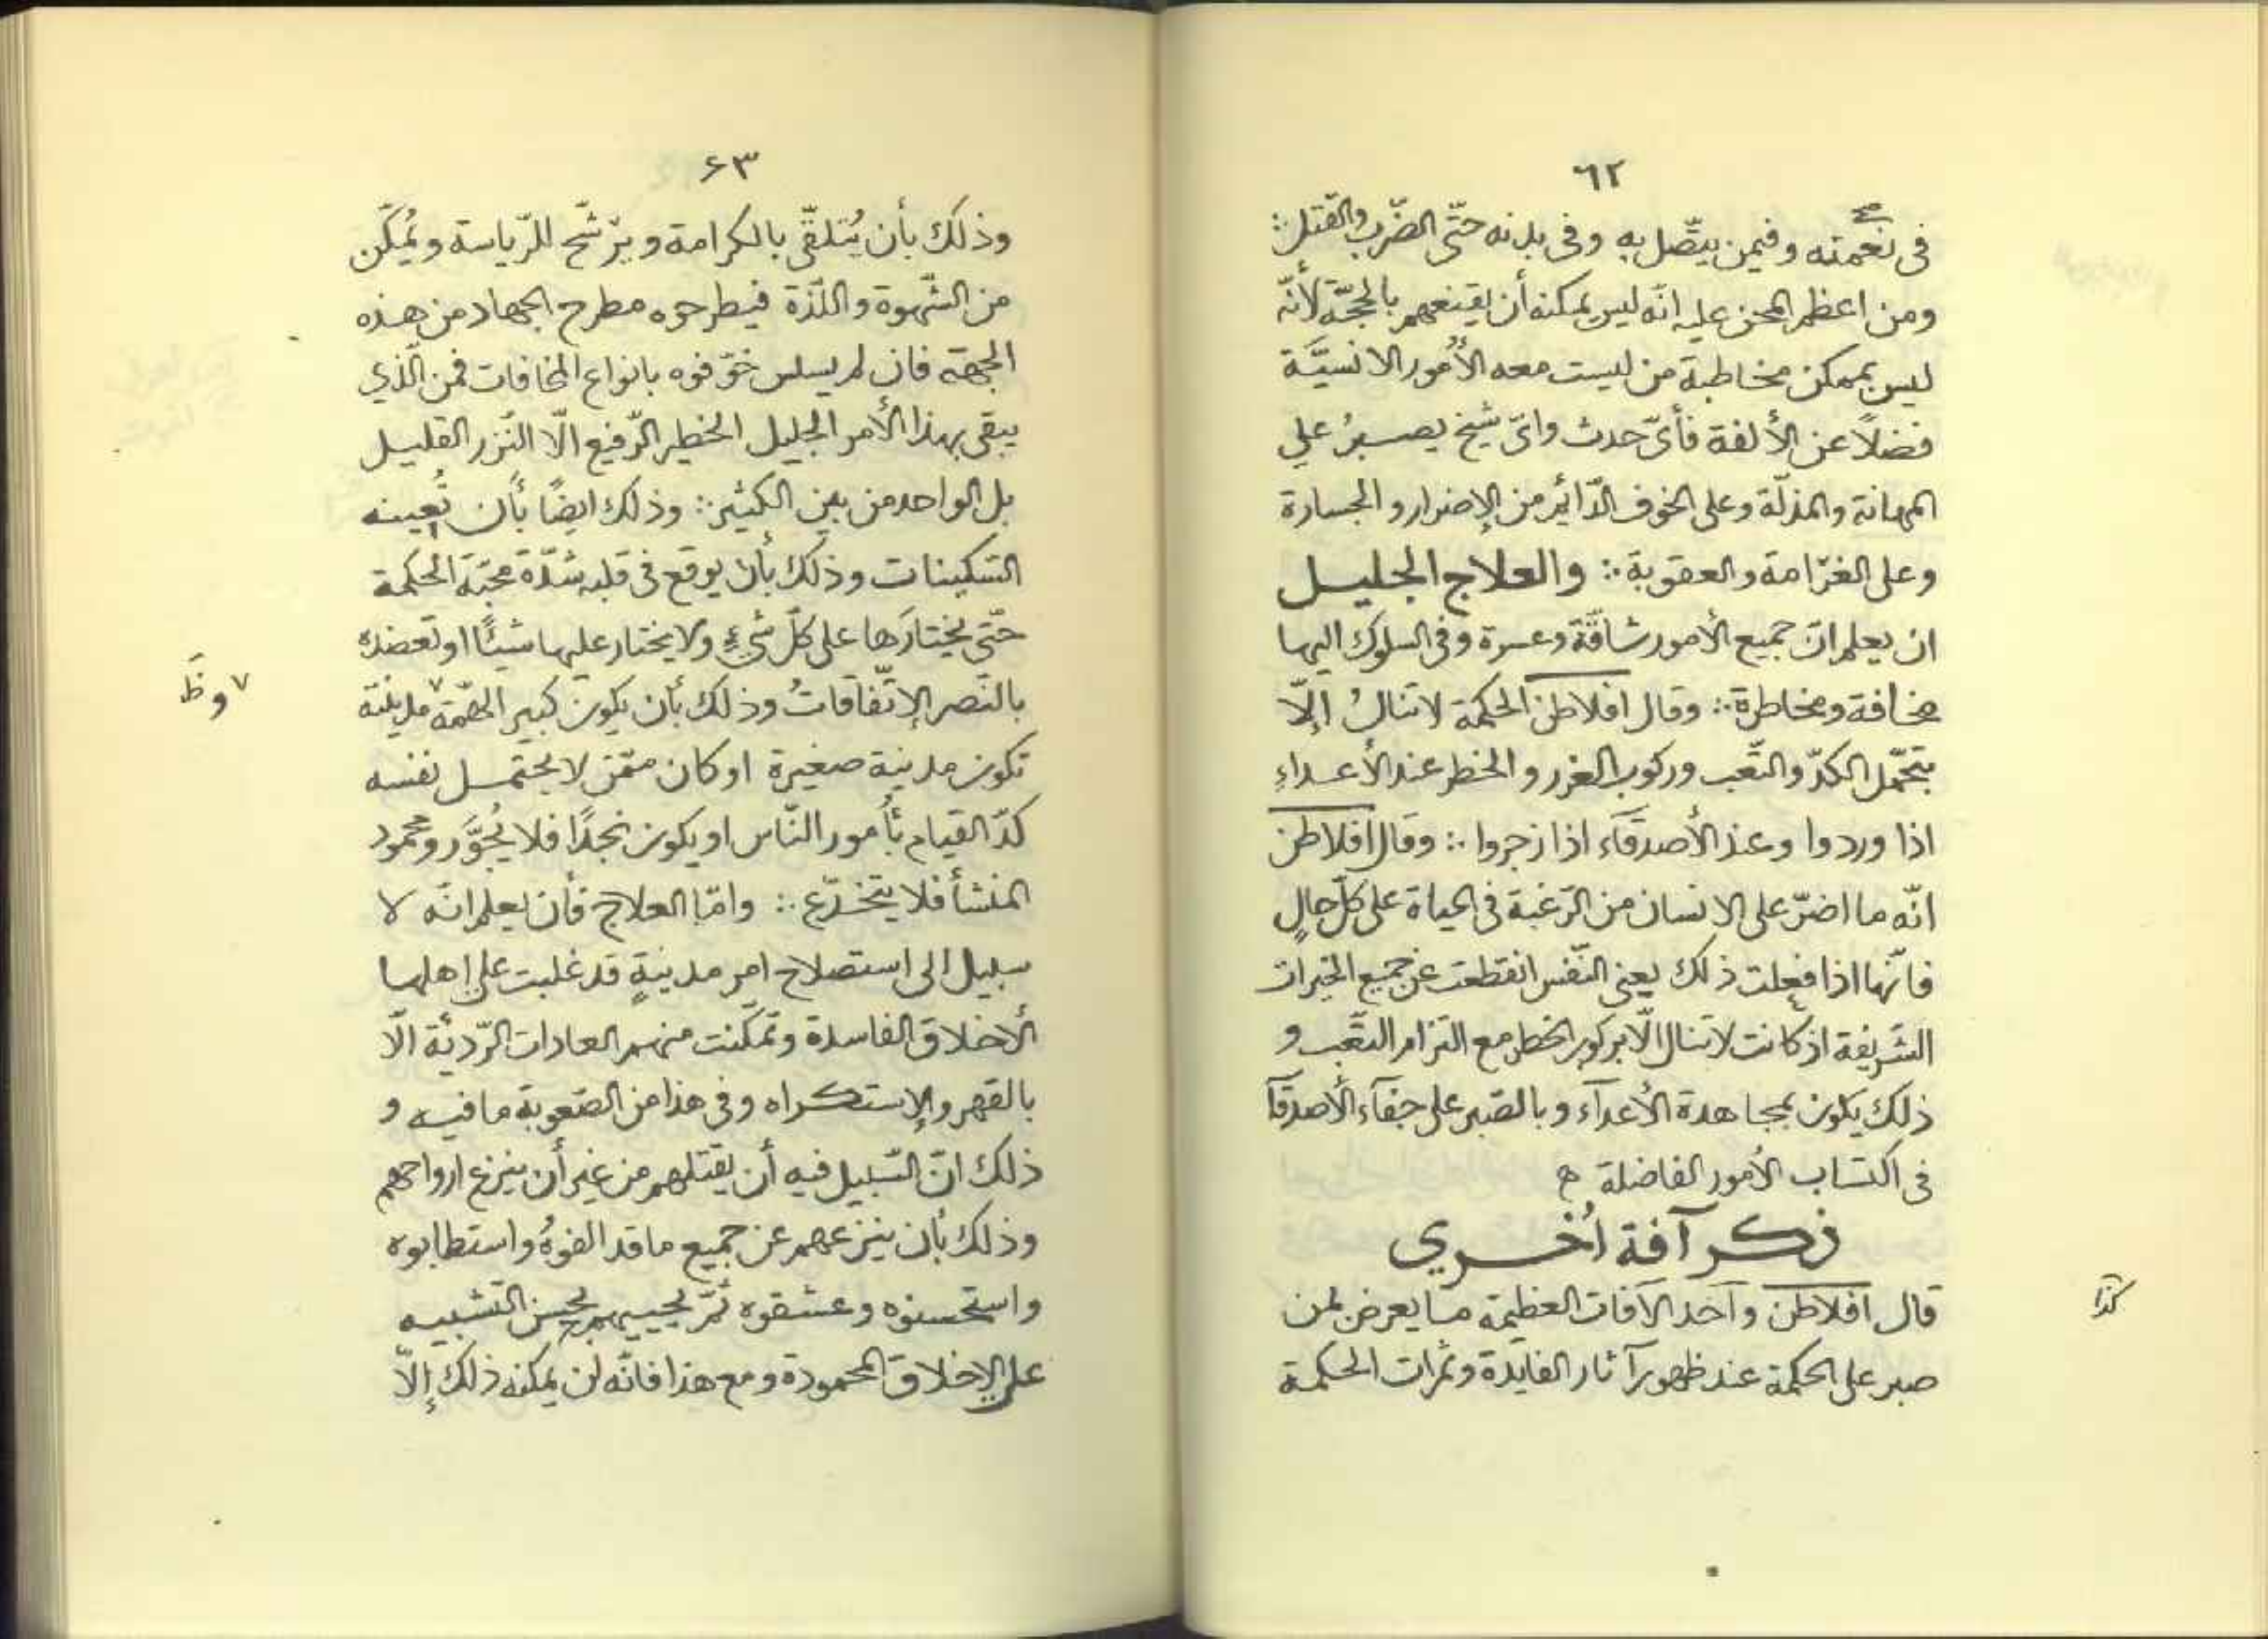 ٦٢
فى نعمته وفيمن يتّصل به وفى بدنه حتّى الضّرب والقتل ∴
ومن اعظم المحن عليه انّه ليس يمكنه أن يقنعهم بالحجّة لأنّه
ليس بممكن مخاطبة من ليست معه الأُمور الانسيَّة
فضلاً عن الألفة فأىّ حدث واىّ شيخ يصبرُ على
المهانة والمذلّة وعلى الخوف الدّائم من الإضرار والجسارة
وعلى الغرّامة والعقوبة ∴ والعلاج الجليل
ان يعلم انّ جميع الأمور شاقّة وعسرة وفى السلوك اليها
مخافة ومخاطرة ∴ وقال افلاطن الحكمة لاتنالُ إلّا
بتحمّل الكدّ والتّعب وركوب الغرر والخطر عند الأعداءِ
اذا وردوا وعند الأصدقاء اذا زجروا ∴ وقال افلاطن
انّه ما اضرّ على الانسان من الرّغبة فى الحياة على كلّ حالٍ
فانّها اذا فعلت ذلك يعنى النّفس انقطعت عن جميع الخيرات
الشّريفة اذ كانت لاتنال الّا بركوب الخطر مع التزام التّعب و
ذلك يكون بمجاهدة الأعدآء وبالصّبر على جفآء الأصدقآ
فى اكتساب الأمور الفاضلة
ذكر آفة اُخرى
قال افلاطن وآحد الآفات العظيمة مايعرض لمن
كذا
صبر على الحكمة عند ظهور آثار الفايدة وثمرات الحكمة
۶۳
وذلك بأن يُتلقّى بالكرامة ويرّشّح للرّياسة ويُمكّن
من الشّهوة واللّذة فيطرحوه مطرح الجهاد من هذه
الجهة فان لم يسلس خوّفوه بانواع المخافات فمن الّذي
يبقى بهذا الأمر الجليل الخطير الرّفيع الّا النّزر القليل
بل الواحد من بين الكثير ∴ وذلك ايضًا بأن تُعينه
التسكينات وذلك بأن يوقع فى قلبه شدّة محبّة الحكمة
حتّى يختارَها على كلّ شيءٍ ولايختار عليها شيئًا او تعضده
بالنّصر الإتّفاقاتُ وذلك بأن يكون كبير الهمّة ٧ مدينته
٧ وظَ
تكون مدينة صغيرة او كان ممّن لايحتمل نفسه
كدّ القيام بأُمور النّاس او يكون نجدًا فلا يُجوَّر ومحمود
المنشأ فلا يتخدّع ∴ وامّا العلاج فأن يعلم انّه لا
سبيل الى استصلاح امر مدينةٍ قد غلبت على اهلها
الأخلاق الفاسدة وتمكّنت منهم العادات الرّديئة الّا
بالقهر والإستكراه وفى هذا من الصّعوبة مافيه و
ذلك انّ السّبيل فيه أن يقتلهم من غير أن ينزع ارواحهم
وذلك بأن ينزعهم عن جميع ماقد الفوهُ واستطابوه
واستحسنوه وعشقوه ثمّ يحييهم بحسن التّشبيه
على الإخلاق المحمودة ومع هذا فانّه لن يمكنه ذلك إلّا